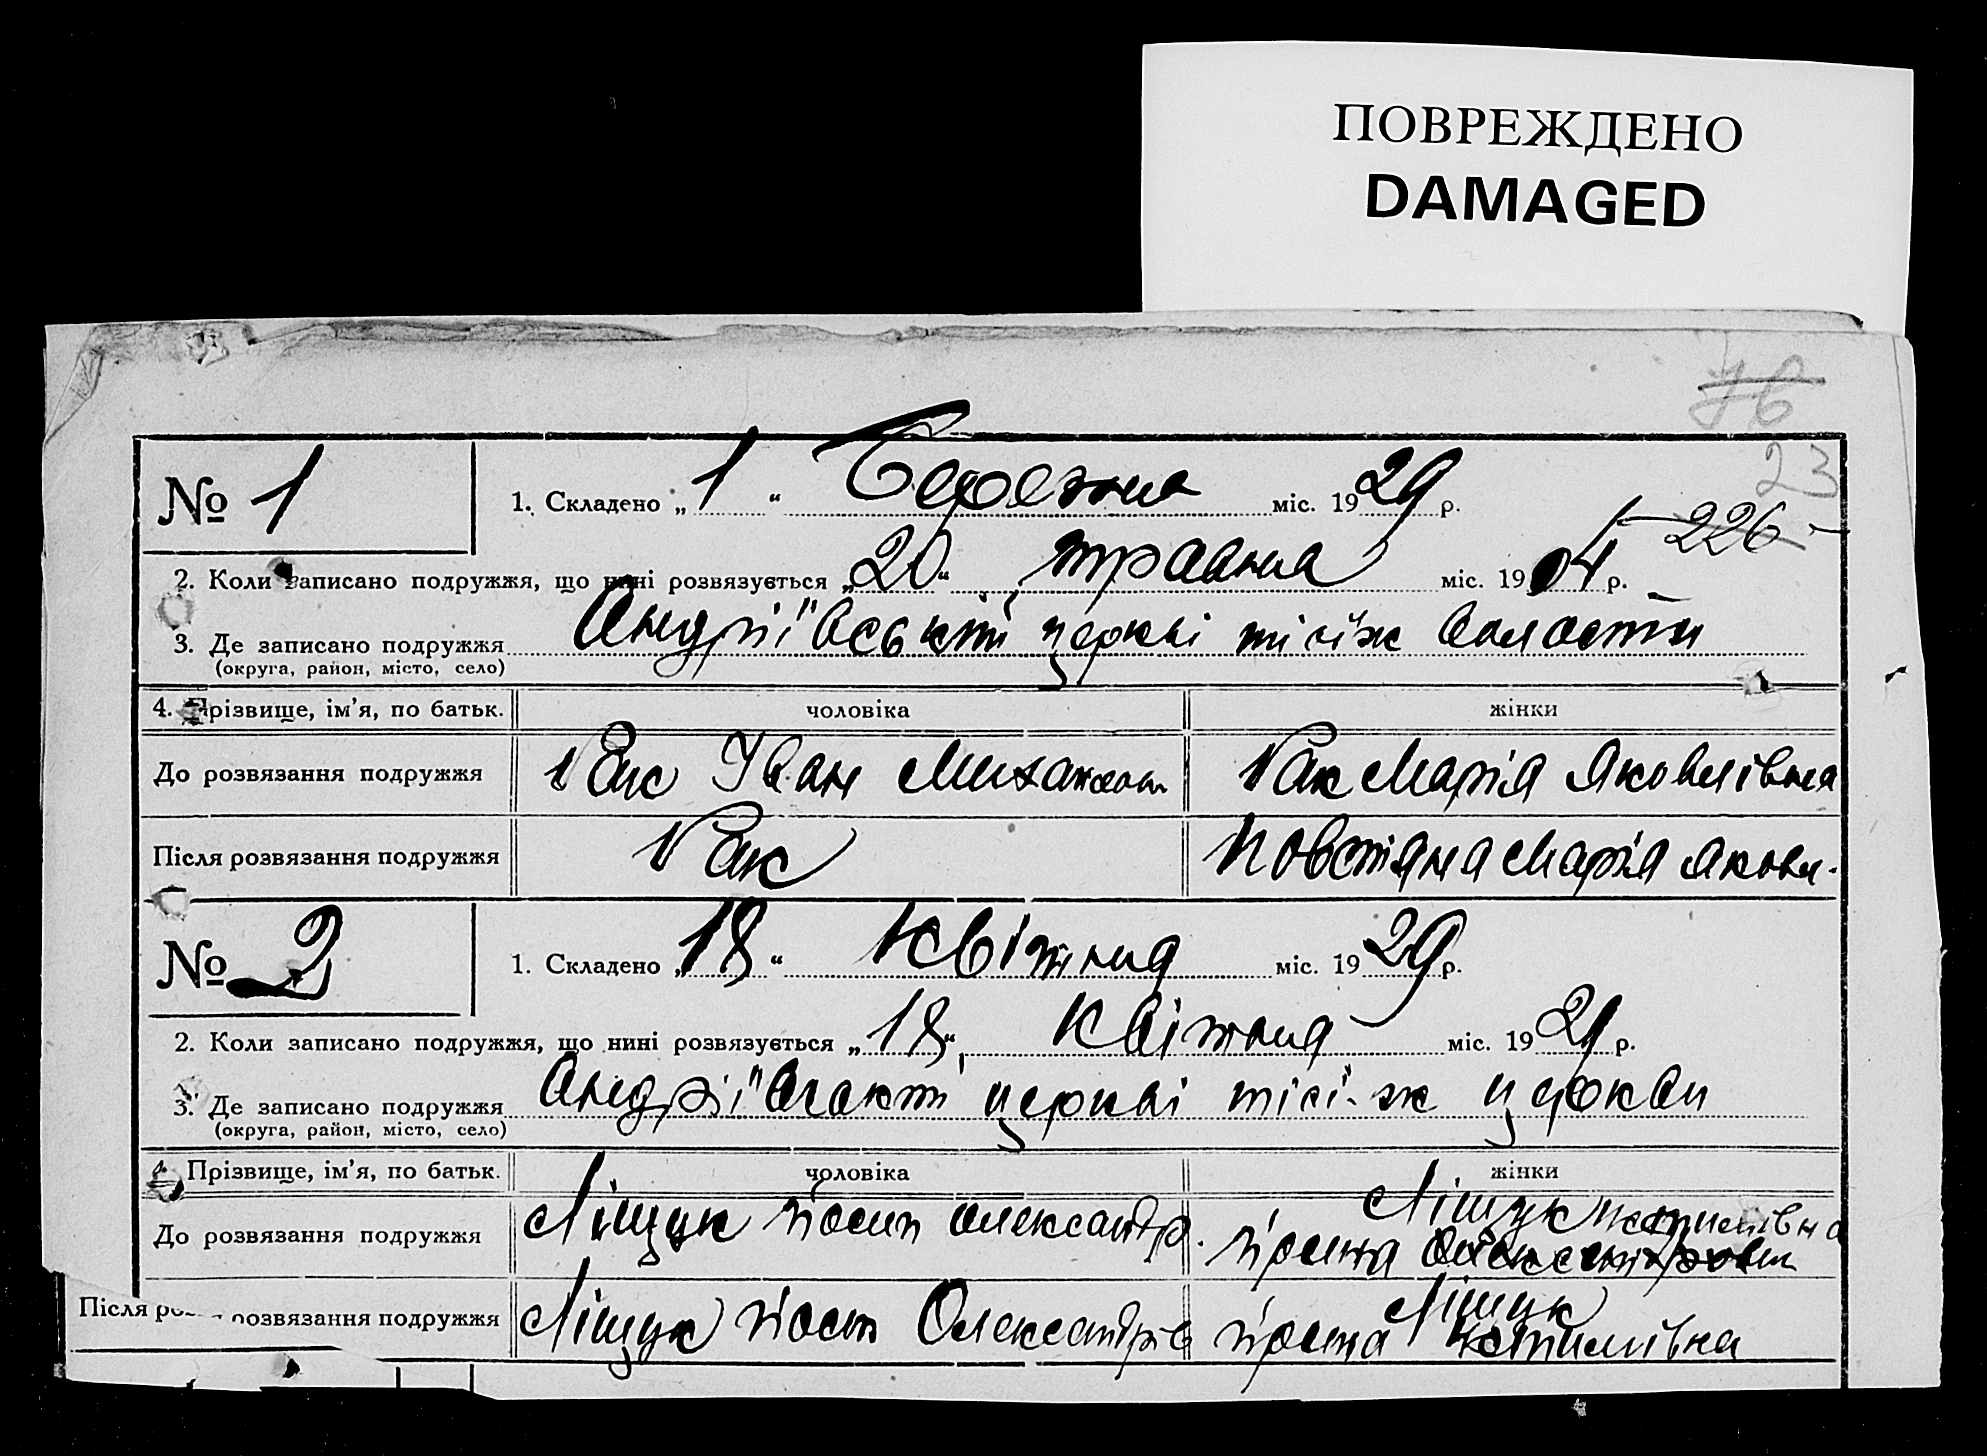 ПОВРЕЖДЕНО
DAMAGED
23
226
№ 1
1. Складено „ 1 “ Березня міс. 19 29 р.
2. Коли записано подружжя, що нині розвязується „ 20 “ травня міс. 19 04 р.
3. Де записано подружжя Андріївській церкві тієїж волости
(округа, район, місто, село)
4. Прізвище, ім’я, по батьк. чоловіка жінки
До розвязання подружжя Рак Іван Рак Марія Яковлівна
Після розвязання подружжя Рак Повстяна Марія Яковл.
№ 2
1. Складено „ 18 “ Квітня міс. 19 29 р.
2. Коли записано подружжя, що нині розвязується „ 18 “ Квітня міс. 19 29 р.
3. Де записано подружжя церкві тієї-ж церкви
(округа, район, місто, село)
Прізвище, ім’я, по батьк. чоловіка жінки
До розвязання подружжя Ліщук Йосип Олександр. Ліщук
Після розвязання подружжя Ліщук Олександрів Ліщук